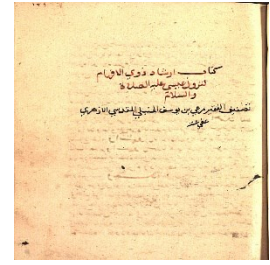 كتاب ارشاد ذوي الافهام
لنزول عيسى عليه الصلاة
والسلام
تصنيف الفقير مرعي بن يوسف الحنبلي المقدسي الازهري
عفي عنه